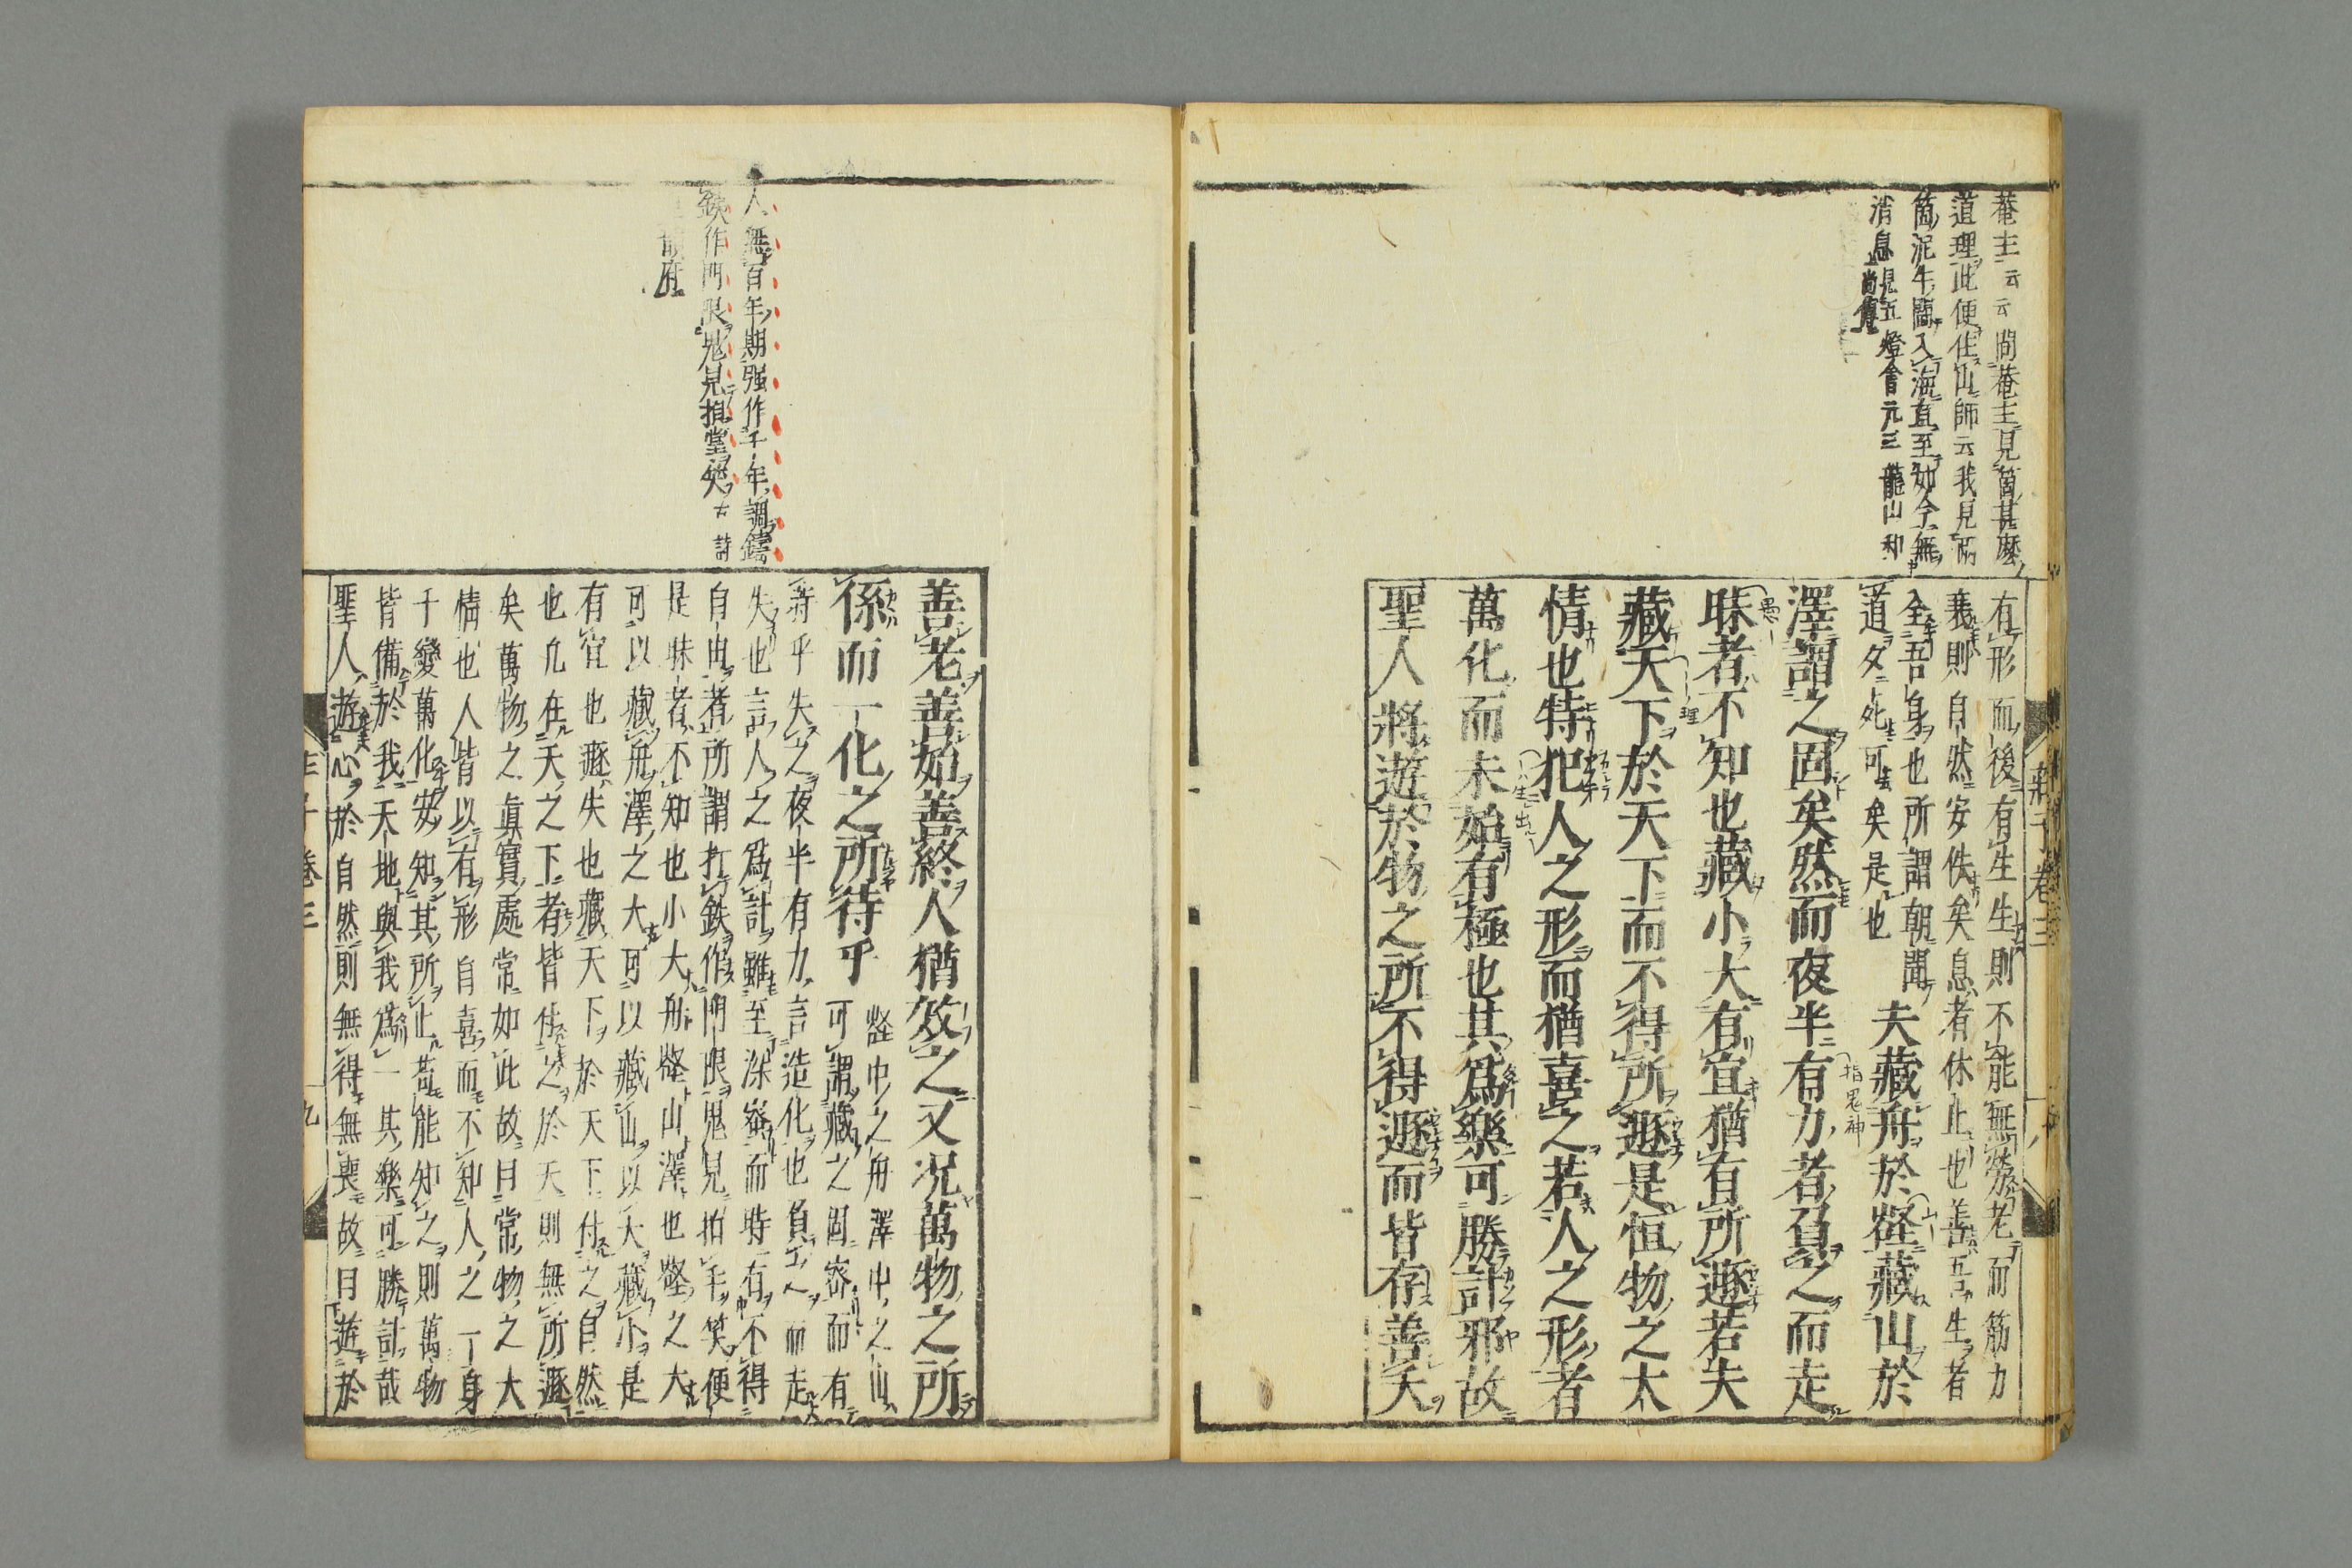 菴主云云問菴主見箇甚麼
道理此便住山師云我見兩
箇泥牛鬪入海直至如今無
消息見五燈會元三龍山和
尚傳
有形而後有生生則不能無勞老而筋力
衰則自然安佚矣息者休止也善吾生者
全吾身也所謂朝聞
道夕死可矣是也
夫藏舟於壑藏山於
澤謂之固矣然而夜半有力者負之而走
昧者不知也藏小大有宜猶有所遯若夫
藏天下於天下而不得所遯是恒物之大
情也特犯人之形而猶喜之若人之形者
萬化而未始有極也其爲樂可勝計邪故
聖人將遊於物之所不得遯而皆存善夭
莊子卷三
人無百年期强作千年調鑄
鐵作門限鬼見拍掌笑古詩
善老善始善終人猶效之又况萬物之所
係而一化之所待乎
壑中之舟澤中之山
可謂藏之固密而有
時乎失之夜半有力言造化也負之而走
失也言人之爲計雖至深密而時有不得
自由者所謂打鉄作門限鬼見拍手笑便
是昧者不知也小大舟壑山澤也壑之大
可以藏舟澤之大可以藏山以大藏小是
有宜也遯失也藏天下於天下付之自然
也凡在天之下者皆付之於天則無所遯
矣萬物之眞實處常如此故曰常物之大
情也人皆以有形自喜而不知人之一身
千變萬化安知其所止苟能知之則萬物
皆備於我天地與我爲一其樂可勝計哉
聖人遊心於自然則無得無喪故曰遊於
莊子卷三
九